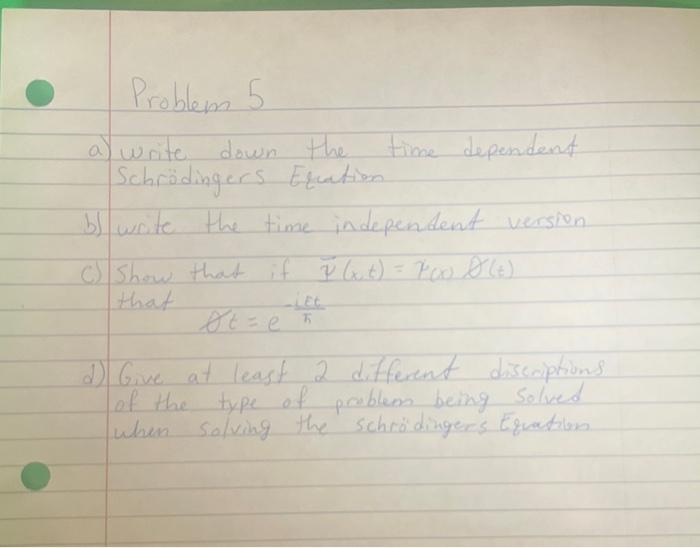 Problem 5
a) write down the time dependent
Schrödingers Equation
b) write the time independent version
c) Show that if Ψ(x,t) = ψ(x) Ø(t)
that
Øt = e^(-iEt/ħ)
d) Give at least 2 different discriptions
of the type of problem being solved
when solving the schrödingers Equation